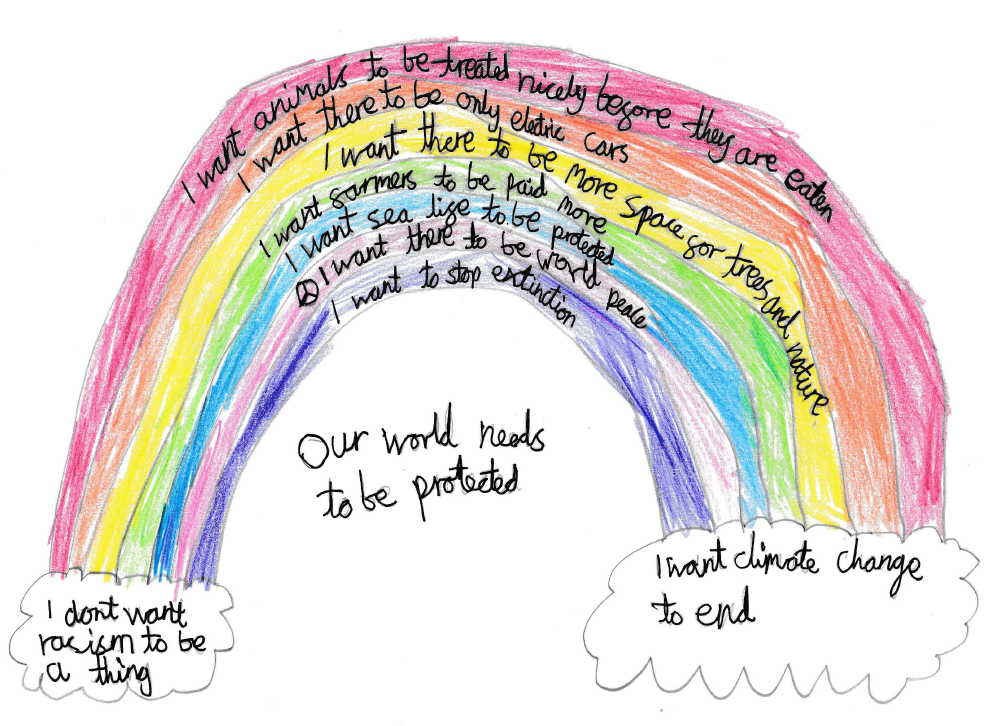 I want animals to be treated nicely begore they are eaten
I want there to be only electric cars
I want there to be more space gor trees and nature
I want garmers to be paid more
I want sea lige to be protected
I want there to be world peace
I want to stop extinction
Our world needs
to be protected
I want climate change
to end
I dont want
racism to be
a thing